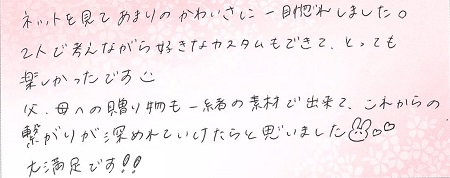 ネットを見てあまりのかわいさに一目惚れしました。
2人で考えながら好きなカスタムもできて、とっても
楽しかったです
父、母への贈り物も一緒の素材で出来て、これからの
繋がりが深めれていけたらと思いました
大満足です!!